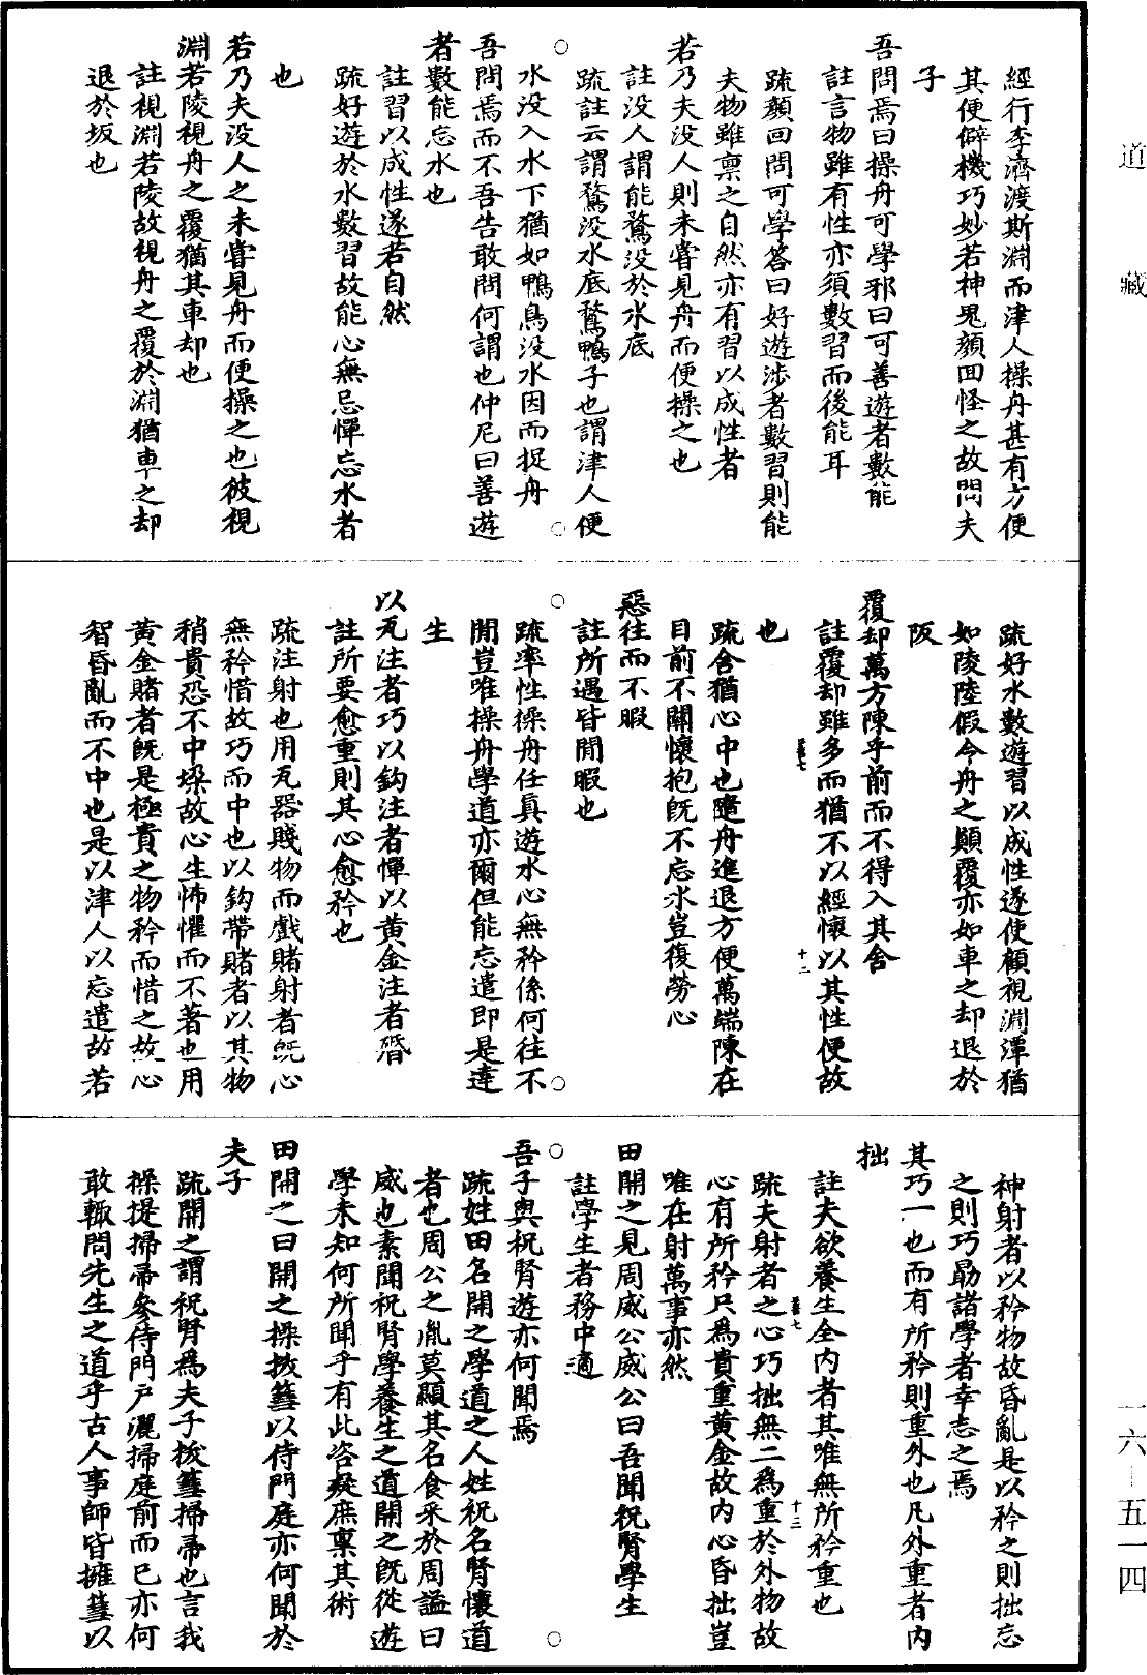 經行李濟渡斯淵而津人操舟甚有方便
其便僻機巧妙若神鬼顏回怪之故問夫
子
吾問焉曰操舟可學邪曰可善遊者數能
註言物雖有性亦須數習而後能耳
疏顏回問可學答曰好遊涉者數習則能
夫物雖禀之自然亦有習以成性者
若乃夫没人則未嘗見舟而便操之也
註没人謂能鶩没於水底
疏註云謂鶩没水底鶩鴨子也謂津人便
水没入水下猶如鴨鳥没水因而捉舟
吾問焉而不吾告敢問何謂也仲尼曰善遊
者數能忘水也
註習以成性遂若自然
疏好遊於水數習故能心無忌憚忘水者
也
若乃夫没人之未嘗見舟而便操之也彼視
淵若陵視舟之覆猶其車却也
註視淵若陵故視舟之覆於淵猶車之却
退於坂也
疏好水數遊習以成性遂使顧視淵潭猶
如陵陸假令舟之顛覆亦如車之却退於
阪
覆却萬方陳乎前而不得入其舍
註覆却雖多而猶不以經懷以其性便故
也
疏舍猶心中也隨舟進退方便萬端陳在
目前不關懷抱既不忘水豈復勞心
惡往而不暇
註所遇皆閒暇也
疏率性操舟任真遊水心無矜係何往不
閒豈唯操舟學道亦爾但能忘遣即是達
生
以瓦注者巧以鈎注者憚以黄金注者殙
註所要愈重則其心愈矜也
疏注射也用瓦器賤物而戲賭射者既心
無矜惜故巧而中也以鈎帶賭者以其物
稍貴恐不中垛故心生怖懼而不著也用
黄金賭者既是極貴之物矜而惜之故心
智昏亂而不中也是以津人以忘遣故若
神射者以矜物故昏亂是以矜之則拙忘
之則巧勗諸學者幸志之焉
其巧一也而有所矜則重外也凡外重者内
拙
註夫欲養生全内者其唯無所矜重也
疏夫射者之心巧拙無二為重於外物故
心有所矜只為貴重黄金故内心昏拙豈
唯在射萬事亦然
田開之見周威公威公曰吾聞祝腎學生
註學生者務中適
吾子與祝腎遊亦何聞焉
疏姓田名開之學道之人姓祝名腎懷道
者也周公之胤莫顯其名食采於周謚曰
威也素聞祝腎學養生之道開之既從遊
學未知何所聞乎有此咨疑庶禀其術
田開之曰開之操拔篲以侍門庭亦何聞於
夫子
疏開之謂祝腎為夫子拔篲掃帚也言我
操提掃帚參侍門户灑掃庭前而已亦何
敢輙問先生之道乎古人事師皆擁篲以
道藏
一六-五一四